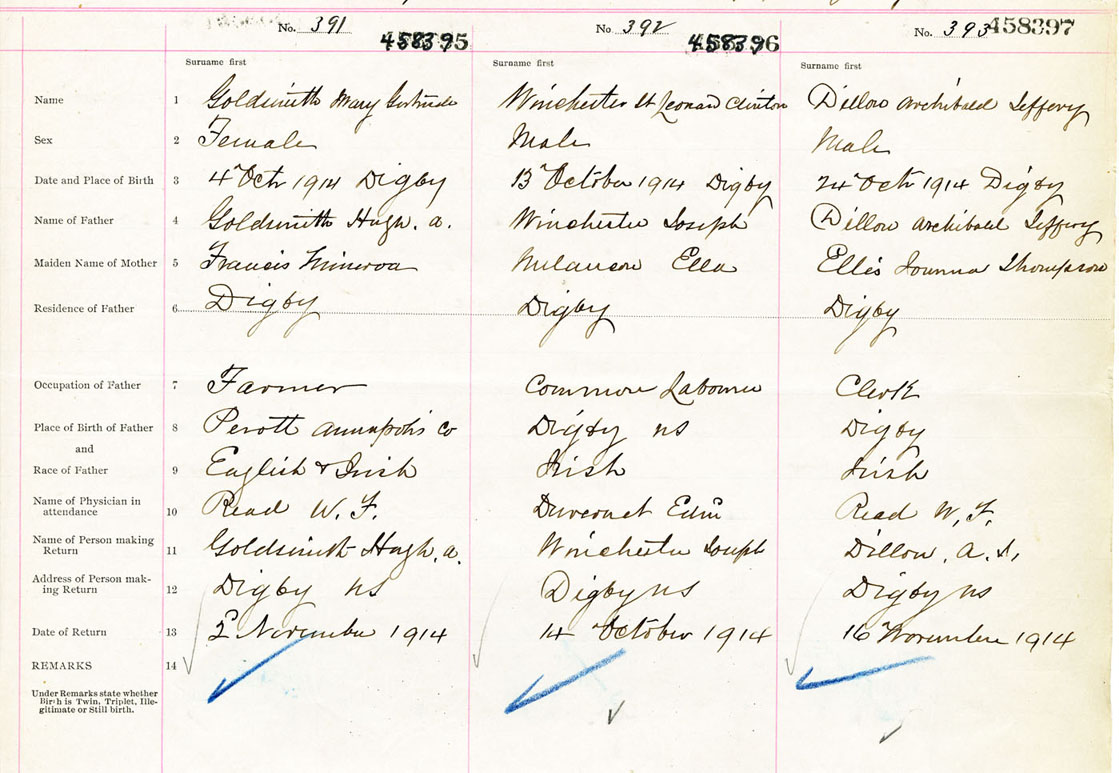 No. 391 458395 No. 392 458396 No. 393 458397
Surname first Surname first Surname first
Name 1 Goldsmith Mary Gertrude Winchester St Leonard Clinton Dillon Archibald Jeffery
Sex 2 Female Male Male
Date and Place of Birth 3 4" Oct 1914 Digby 13" October 1914 Digby 24" Oct 1914 Digby
Name of Father 4 Goldsmith Hugh. a. Winchester Joseph Dillon Archibald Jeffery
Maiden Name of Mother 5 Francis Minerva Melanson Ella Ellis Joanna Thompson
Residence of Father 6 Digby Digby Digby
Occupation of Father 7 Farmer Common Labourer Clerk
Place of Birth of Father 8 Perott Annapolis Co Digby ns Digby
and
Race of Father 9 English & Irish Irish Irish
Name of Physician in
attendance 10 Read W. F. Duvernet Edw Read W. F.
Name of Person making
Return 11 Goldsmith Hugh. a. Winchester Joseph Dillon, A. J.
Address of Person mak-
ing Return 12 Digby ns Digby ns Digby ns
Date of Return 13 2" November 1914 14 October 1914 16" November 1914
REMARKS 14
Under Remarks state whether
Birth is Twin, Triplet, Ille-
gitimate or Still birth.